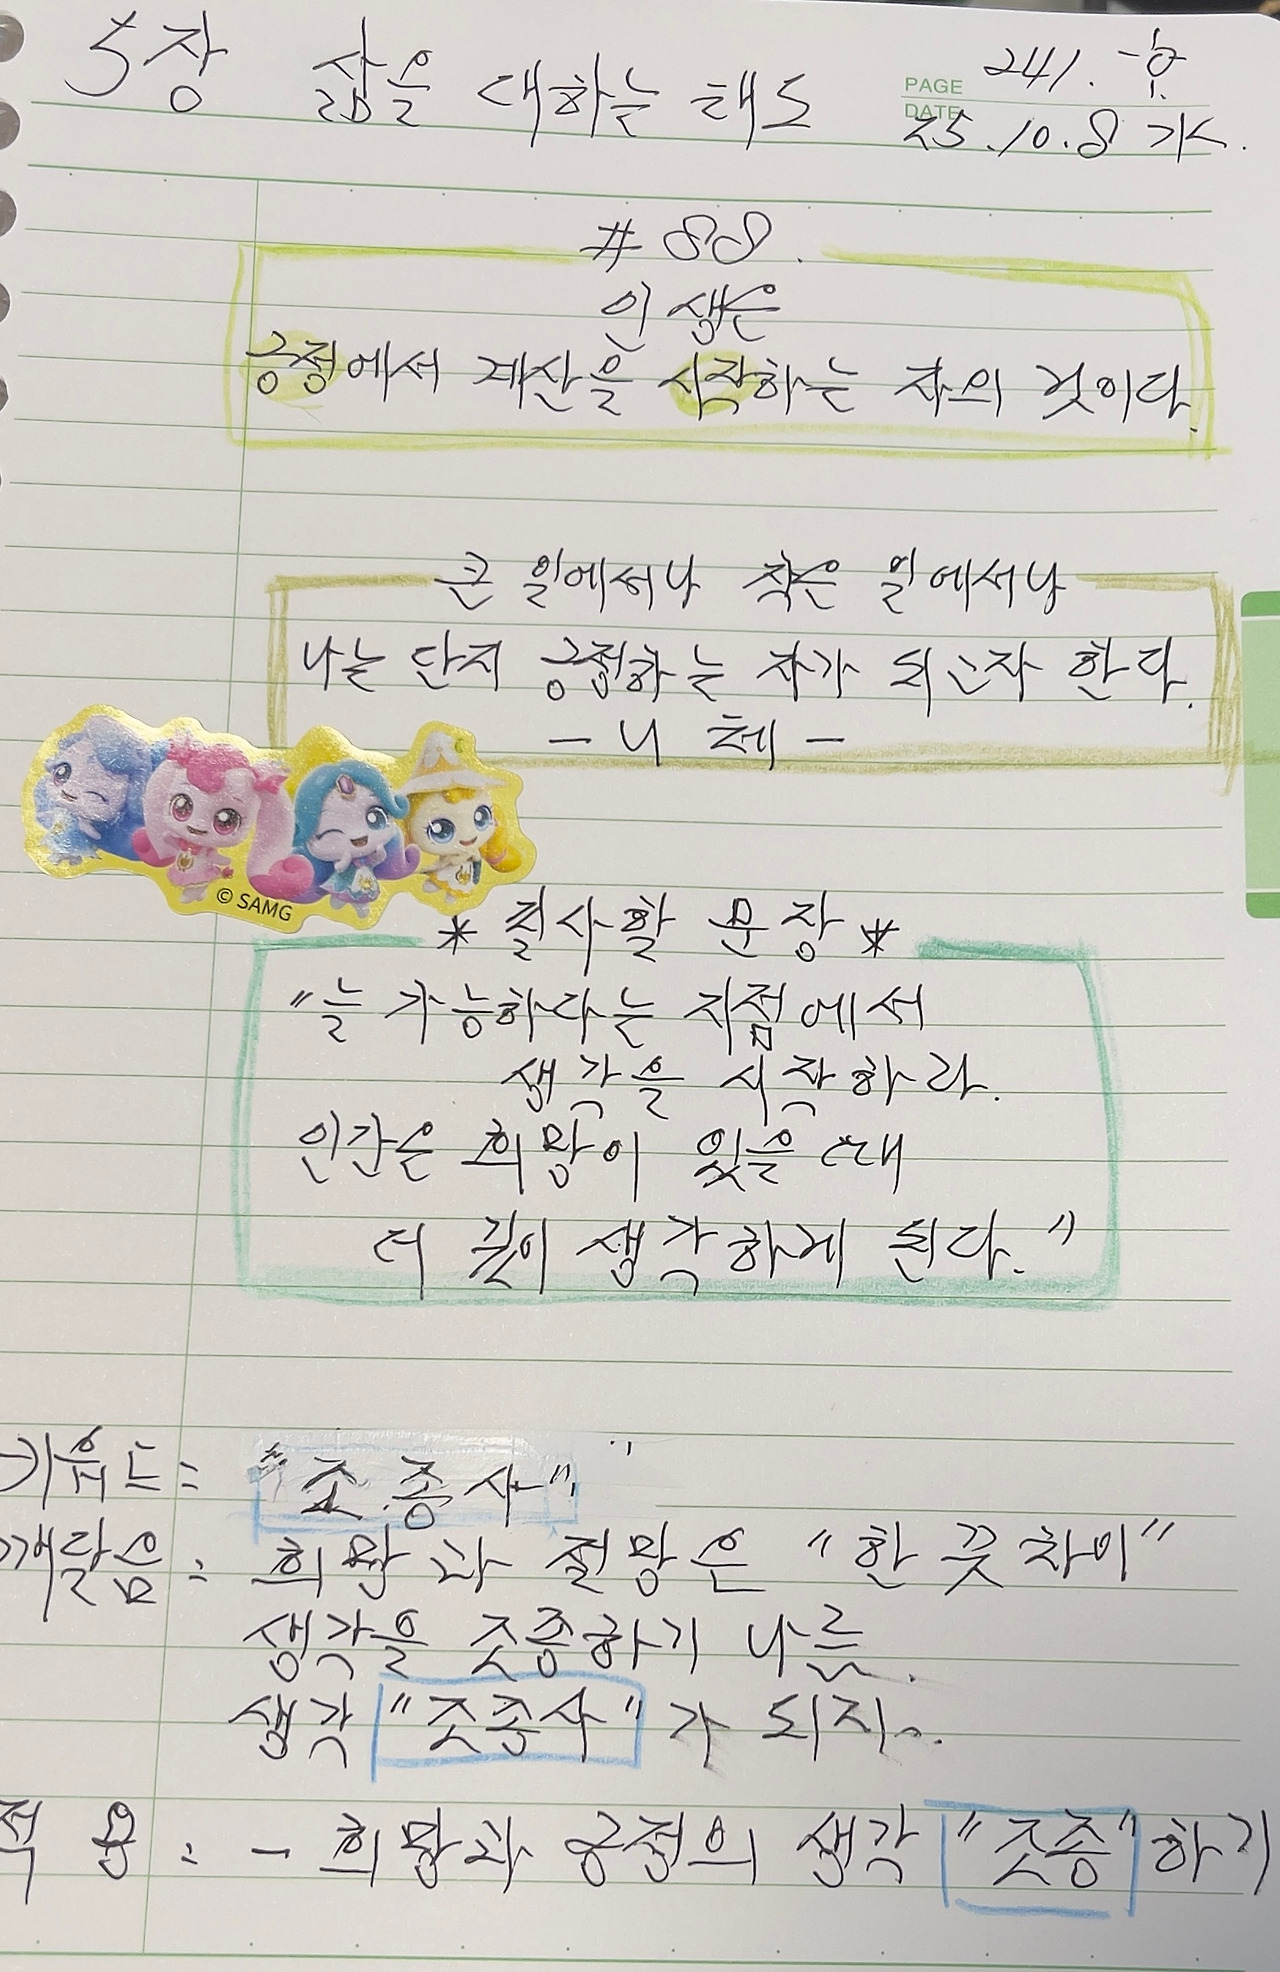 5장 삶을 대하는 태도
PAGE 241.
DATE 25.10.8
#88.
인생은
긍정에서 계산을 시작하는 자의 것이다.
큰 일에서나 작은 일에서나
나는 단지 긍정하는 자가 되고자 한다.
- 니체 -
© SAMG
* 필사할 문장 *
"늘 가능하다는 지점에서
생각을 시작하라.
인간은 희망이 있을 때
더 깊이 생각하게 된다."
키워드= "조종사"
깨달음: 희망과 절망은 "한 끗 차이"
생각을 조종하기 나름.
생각 "조종사"가 되자.
적용: - 희망과 긍정의 생각 "조종"하기